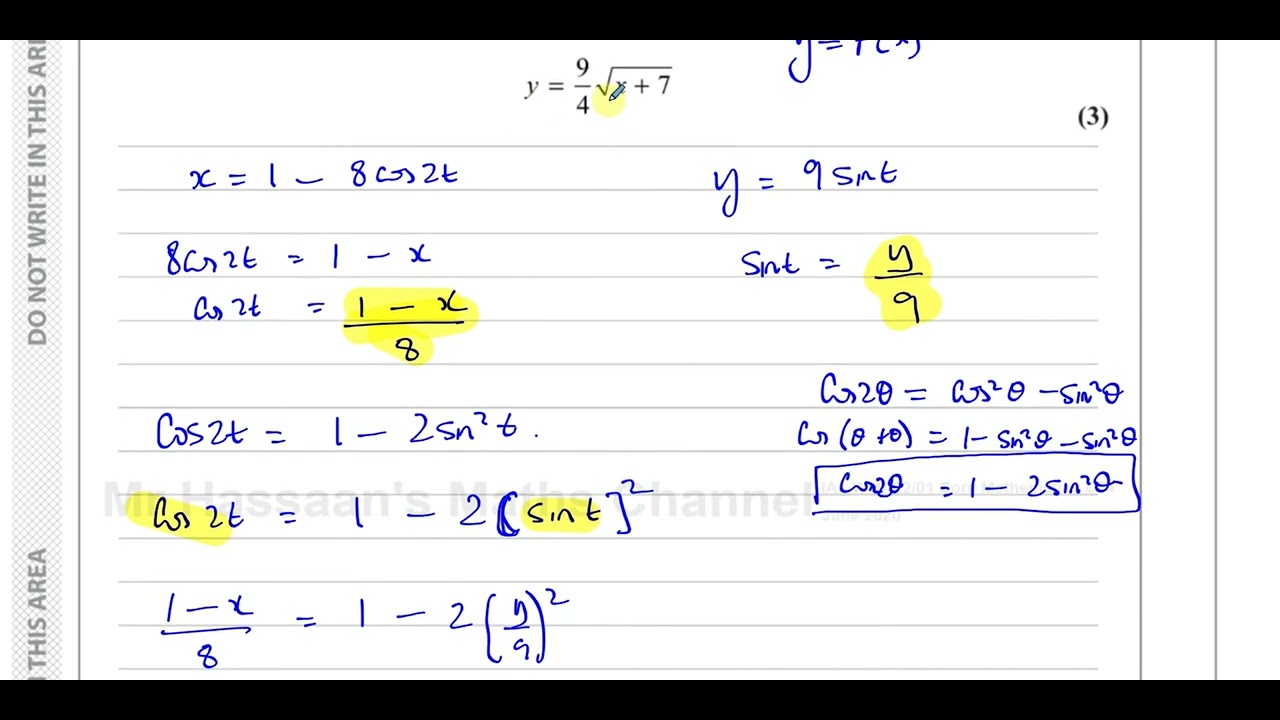 DO NOT WRITE IN THIS AREA
y = 9/4 √x + 7
(3)
x = 1 - 8cos2t
y = 9 sint
8cos2t = 1 - x
sint = y/9
cos 2t = 1 - x / 8
Cos2θ = cos²θ - sin²θ
Cos (θ+θ) = 1 - sin²θ - sin²θ
Cos2θ = 1 - 2sin²θ
Cos2t = 1 - 2sin²t.
Mr Hassaan's Maths Channel
June 2020
Cos 2t = 1 - 2[sin t]²
1 - x / 8 = 1 - 2(y/9)²
THIS AREA